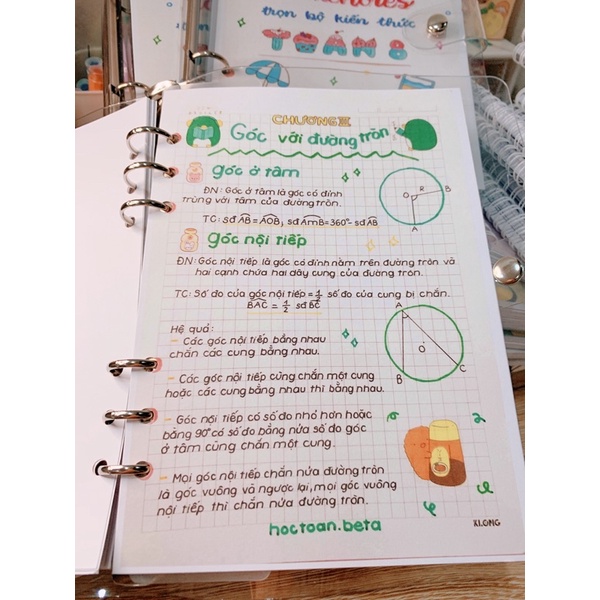 trọn bộ kiến thức
TOÁN 8
CHƯƠNG III
Góc với đường tròn
góc ở tâm
ĐN: Góc ở tâm là góc có đỉnh
trùng với tâm của đường tròn.
TC: sđ AB = AOB, sđ AmB = 360° - sđ AB
O R B
A
góc nội tiếp
ĐN: Góc nội tiếp là góc có đỉnh nằm trên đường tròn và
hai cạnh chứa hai dây cung của đường tròn.
TC: Số đo của góc nội tiếp = 1/2 số đo của cung bị chắn.
BAC = 1/2 sđ BC
A
O
B
C
Hệ quả:
- Các góc nội tiếp bằng nhau
chắn các cung bằng nhau.
- Các góc nội tiếp cùng chắn một cung
hoặc các cung bằng nhau thì bằng nhau.
- Góc nội tiếp có số đo nhỏ hơn hoặc
bằng 90° có số đo bằng nửa số đo góc
ở tâm cùng chắn một cung.
- Mọi góc nội tiếp chắn nửa đường tròn
là góc vuông và ngược lại, mọi góc vuông
nội tiếp thì chắn nửa đường tròn.
hoctoan.beta
XI.ONG